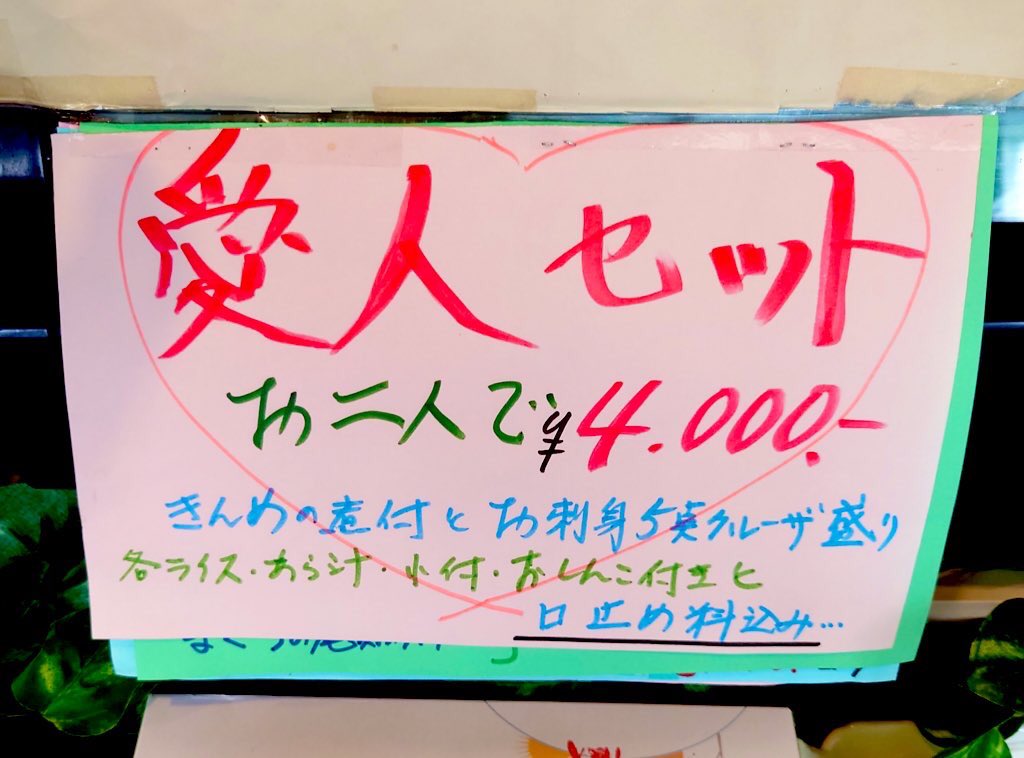 愛人セット
お二人で¥4.000.-
きんめの煮付とお刺身5点クルーザ盛り
各ライス・あら汁・小付・おしんこ付きと
口止め料込み…